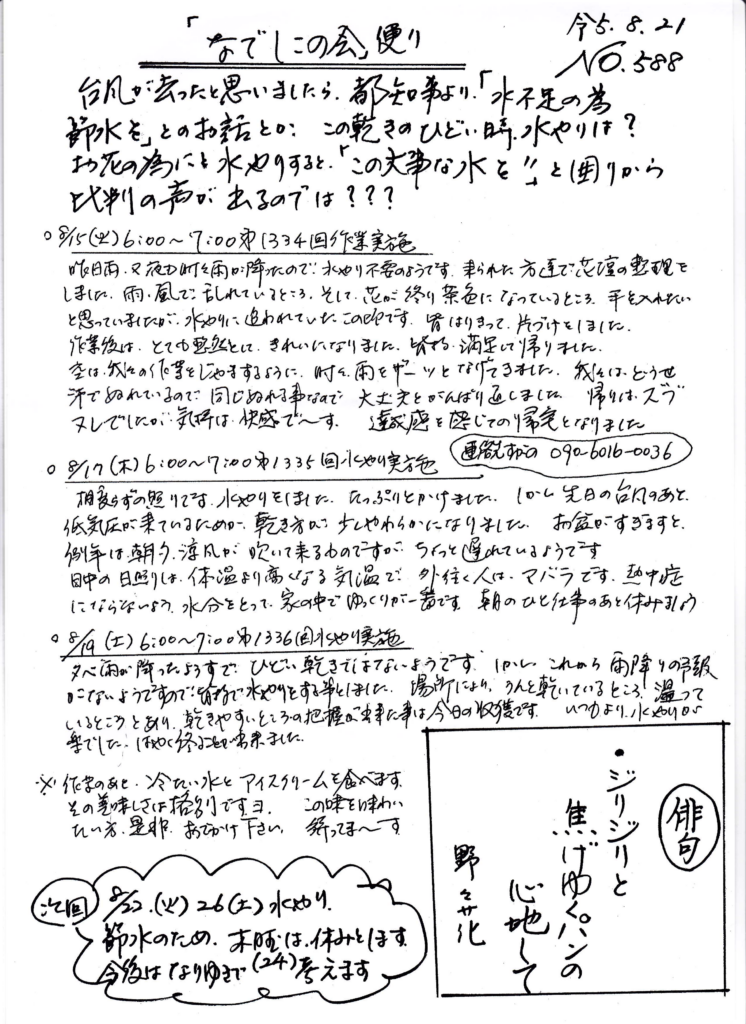 「なでしこの会」便り
令5.8.21
NO.588
台風が去ったと思いましたら、都知事より、「水不足の為
節水を」とのお話とか この乾きのひどい時、水やりは?
お花の為にと水やりすると、「この大事な水を!!」と囲りから
批判の声が出るのでは???
○8/15(火)6:00〜7:00第1334回作業実施
昨日雨、又夜も時々雨が降ったので、水やり不要のようです。来られた方達で花壇の整理を
しました。雨、風で乱れているところ、そして、花が終り茶色になっているところ、手を入れたい
と思っていましたが、水やりに追われていたこの頃です。皆はりきって、片づけをしました。
作業後は、とても整然とし、きれいになりました。皆さん満足して帰りました。
空は、我々の作業をじゃまするように、時々、雨をザーッとなげてきました。我々は、どうせ
汗でぬれているので、同じぬれる事なので、大丈夫とがんばり通しました。帰りは、ズブ
ヌレでしたが、気持は、快感で〜す。達成感を感じての帰宅となりました
連絡先 090-6016-0036
○8/17(木)6:00〜7:00第1335回水やり実施
相変らずの照りです。水やりをしました。たっぷりとかけました。しかし先日の台風のあと、
低気圧が来ているためか、乾き方が少しやわらかになりました。お盆がすぎますと、
例年は、朝夕、涼風が吹いて来るのですが、ちょっと遅れているようです
日中の日照りは、体温より高くなる気温で、外往く人は、マバラです。熱中症
にならないよう、水分をとって、家の中でゆっくりが一番です。朝のひと仕事のあと休みましょう
○8/19(土)6:00〜7:00第1336回水やり実施
夕べ雨が降ったようすで、ひどい乾きではないようです。しかし、これから雨降りの予報
がないようですので、皆で水やりをする事としました。場所により、うんと乾いているところ、湿って
いるところとあり、乾きやすいところの把握が出来た事は今日の収穫です。いつもより、水やりが
楽でした。はやく終ることが出来ました。
※作業のあと、冷たい水とアイスクリームを食べます。
その美味しさは格別ですヨ。この味を味わい
たい方、是非、おでかけ下さい。待ってま〜す
次回
8/22.(火)26(土)水やり、
節水のため、木曜は、休みとします。
(24)
今後はなりゆきで考えます
俳句
・ジリジリと
焦げゆくパンの
心地して
野々花